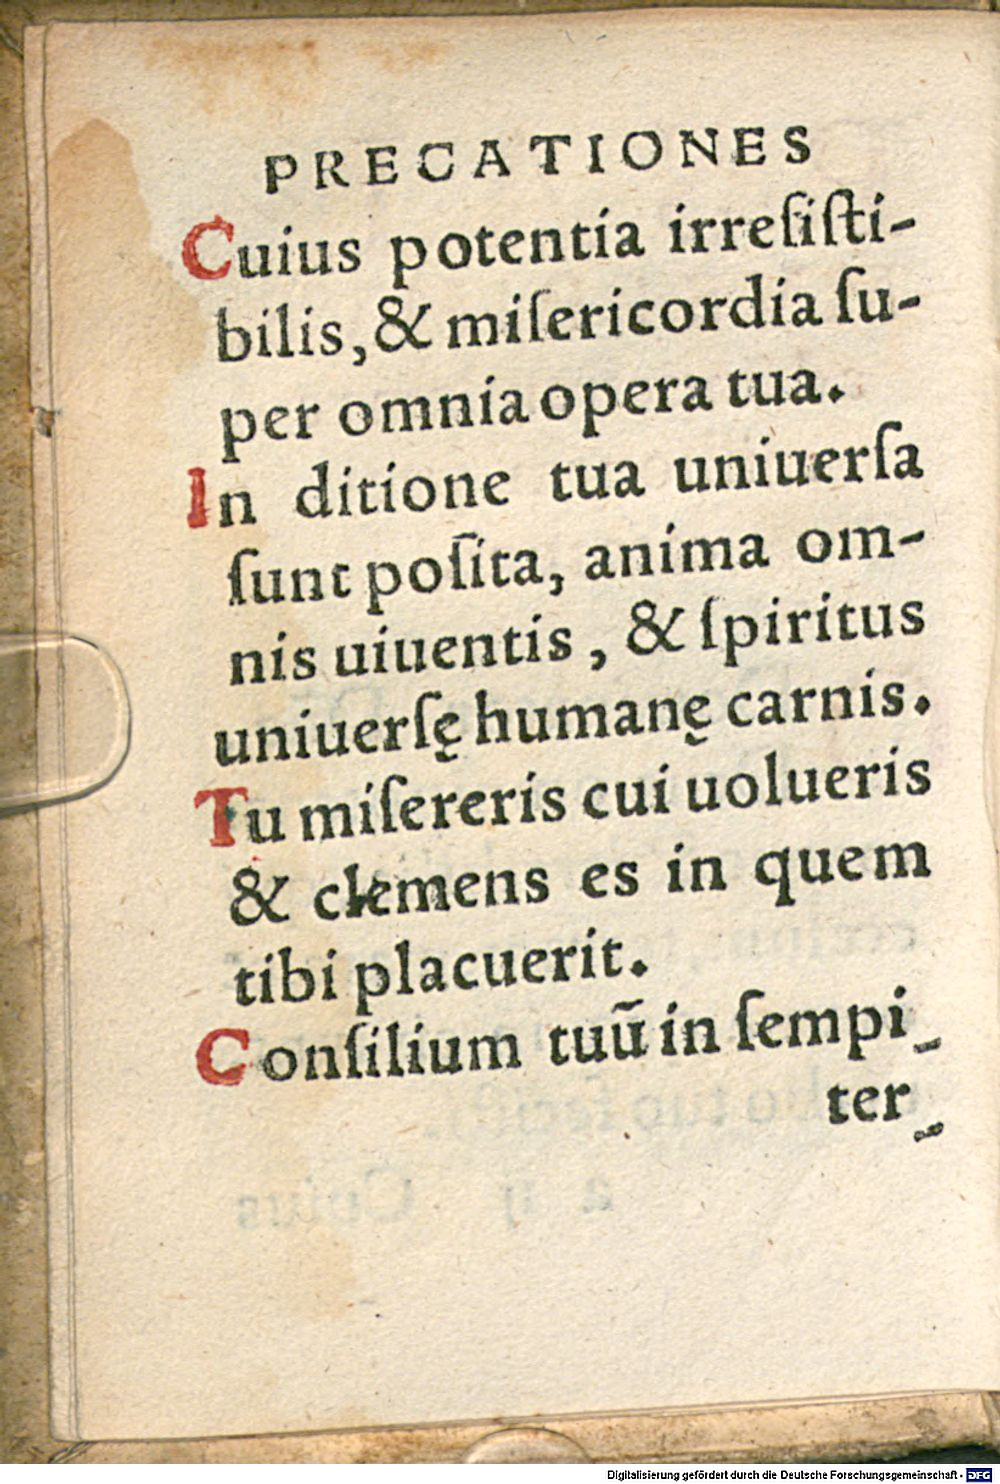 PRECATIONES
Cuius potentia irreſiſti-
bilis, & miſericordia ſu-
per omnia opera tua.
In ditione tua uniuerſa
ſunt poſita, anima om-
nis uiuentis, & ſpiritus
uniuerſę humanę carnis.
Tu miſereris cui uolueris
& clemens es in quem
tibi placuerit.
Conſilium tuū in ſempi-
ter-
Digitalisierung gefördert durch die Deutsche Forschungsgemeinschaft - DFG